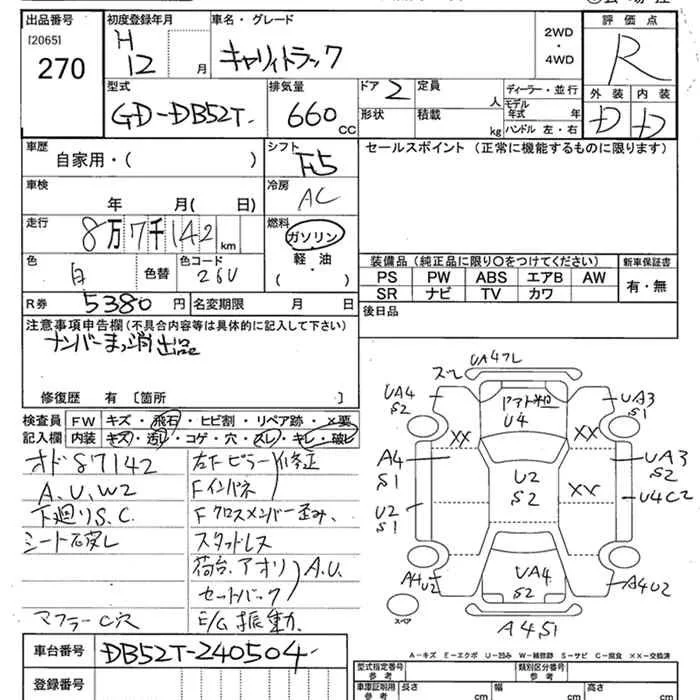 出品番号 初度登録年月 車名・グレード 評価点
[2065] H 2WD
270 12 月 キャリィトラック ・ R
4WD
型式 排気量 ドア 2 定員 人 ディーラー・並行 外装 内装
GD-DB52T 660 CC 形状 積載 kg モデル年式 年 D D
ハンドル 左・右
車歴 シフト セールスポイント (正常に機能するものに限ります)
自家用・( ) F5
車検 冷房
年 月( 日) AC
走行 燃料
8万7千142 km ガソリン
色 色コード 軽油 装備品 (純正品に限り〇をつけてください) 新車保証書
白 色替 26U ・ PS PW ABS エアB AW 有・無
( ) SR ナビ TV カワ
R券 5380 円 名変期限 月 日 後日品
注意事項申告欄 (不具合内容等は具体的に記入して下さい)
ナンバーまっ消出品
修復歴 有 〔箇所 〕
検査員 FW キズ・飛石・ヒビ割・リペア跡・×要
記入欄 内装 キズ・汚レ・コゲ・穴・スレ・キレ・破レ
オド87142 右下ピラー 修正
A.U.W2 Fインパネ
下廻りS.C. Fクロスメンバー歪み
シート スタッドレス
荷台.アオリ A.U.
セットバック
マフラーC穴 E/G振動
UA4フレ
スレ
UA4 S2 U4 UA3 S1
XX XX
A4 S1 UA3 S2
U2 S2 XX U4C2
U2 S1
A4U2 UA4 S2 A4U2
スペア
A4S1
A-キズ E-エクボ U-凹み W-補修跡 S-サビ C-腐食 XX-交換済
車台番号 DB52T-240504 型式指定番号 参考 類別区分番号 参考
登録番号 車庫証明用 参考 長さ cm 幅 cm 高さ cm